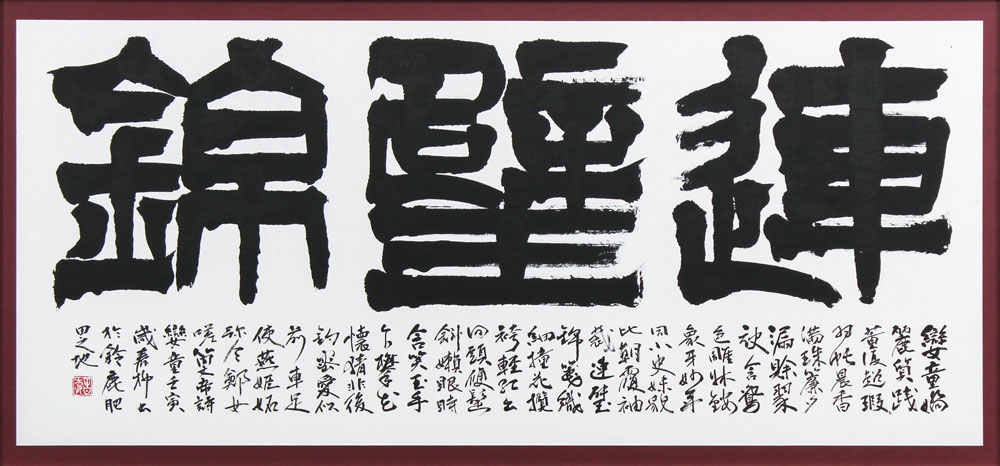 連璧錦
孌童嬌
麗質踐
董復超瑕
羽帳晨香
滿珠簾夕
漏賒翠
被含鴛
色雕牀鏤
象牙妙年
同小史姝貌
比朝霞袖
裁連璧
錦牋織
細橦花攬
袴輕紅出
回頭雙鬢
斜嬾眼時
含笑玉手
乍攀花
懷猜非後
釣密愛似
前車足
使燕姬妬
弥令鄭女
嗟簡文帝詩
孌童壬寅
歲春
於鈴鹿肥
田之地